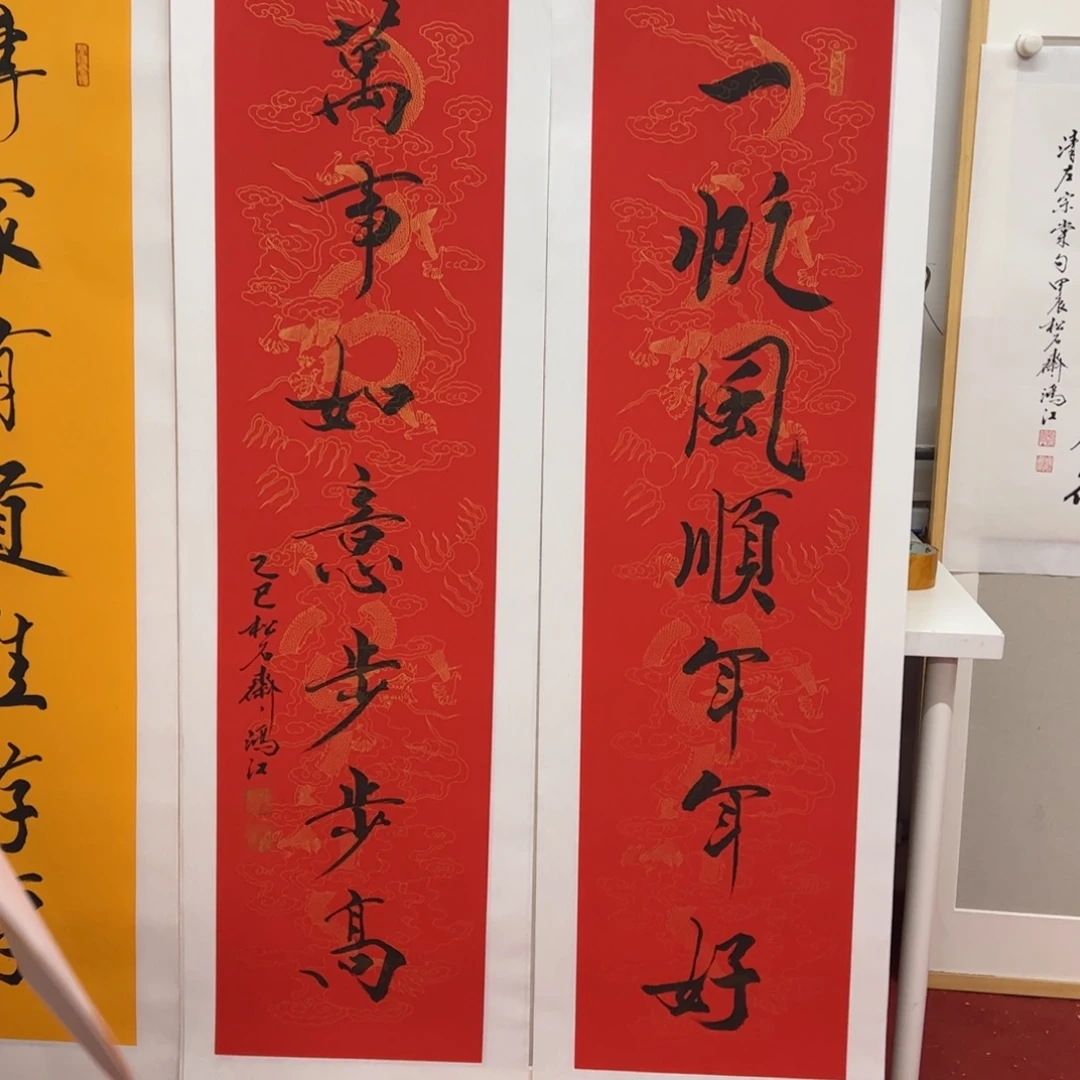 一帆風順年年好
萬事如意步步高
乙巳松石齋鴻江
清左宗棠句甲辰松石齋鴻江
家有道生存